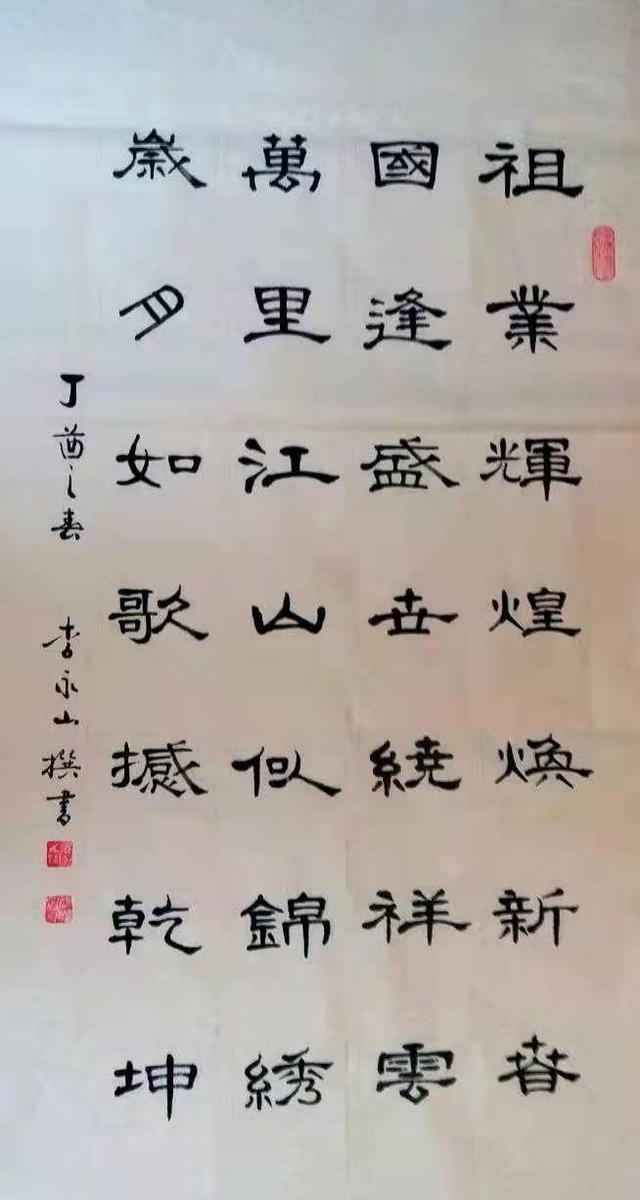 祖業輝煌煥新春
國逢盛世繞祥雲
萬里江山似錦綉
歲月如歌撼乾坤
丁酉之春 李永山撰書